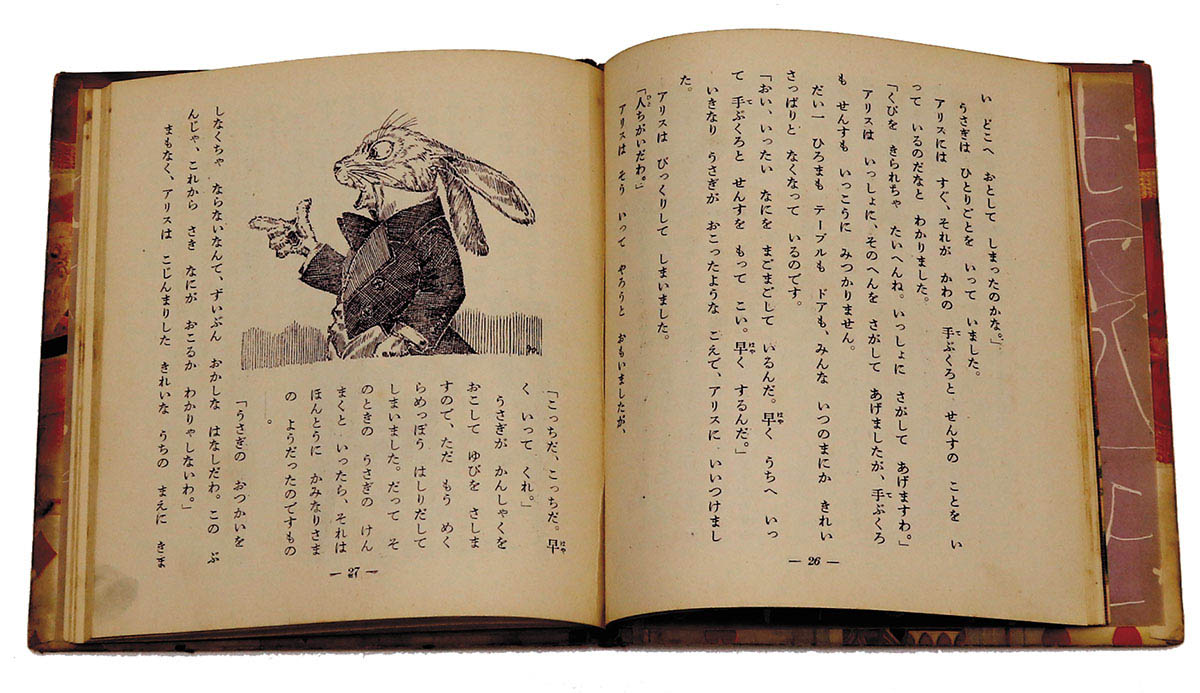 い どこへ おとして しまったのかな。」
うさぎは ひとりごとを いって いました。
アリスには すぐ、それが かわの 手ぶくろと せんすの ことを い
って いるのだなと わかりました。
「くびを きられちゃ たいへんね。いっしょに さがして あげますわ。」
アリスは いっしょに、そのへんを さがして あげましたが、手ぶくろ
も せんすも いっこうに みつかりません。
だい一 ひろまも テーブルも ドアも、みんな いつのまにか きれい
さっぱりと なくなって いるのです。
「おい、いったい なにを まごまごして いるんだ。早く うちへ いっ
て 手ぶくろと せんすを もって こい。早く するんだ。」
いきなり うさぎが おこったような こえで、アリスに いいつけまし
た。
アリスは びっくりして しまいました。
「人ちがいだわ。」
アリスは そう いって やろうと おもいましたが、
— 26 —
「こっちだ、こっちだ。早
く いって くれ。」
うさぎが かんしゃくを
おこして ゆびを さしま
すので、ただ もう めく
らめっぽう はしりだして
しまいました。だって そ
のときの うさぎの けん
まくと いったら、それは
ほんとうに かみなりさま
の ようだったのですもの
。
「うさぎの おつかいを
しなくちゃ ならないなんて、ずいぶん おかしな はなしだわ。この ぶ
んじゃ、これから さき なにが おこるか わかりゃしないわ。」
まもなく、アリスは こじんまりした きれいな うちの まえに きま
— 27 —